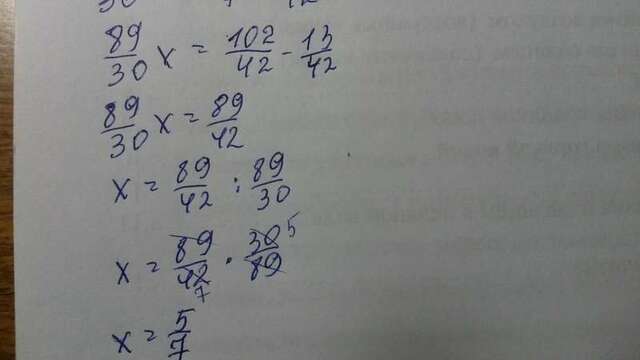 30 12
89/30 x = 102/42 - 13/42
89/30 x = 89/42
x = 89/42 : 89/30
x = 89/42 7 · 30/89 5
x = 5/7